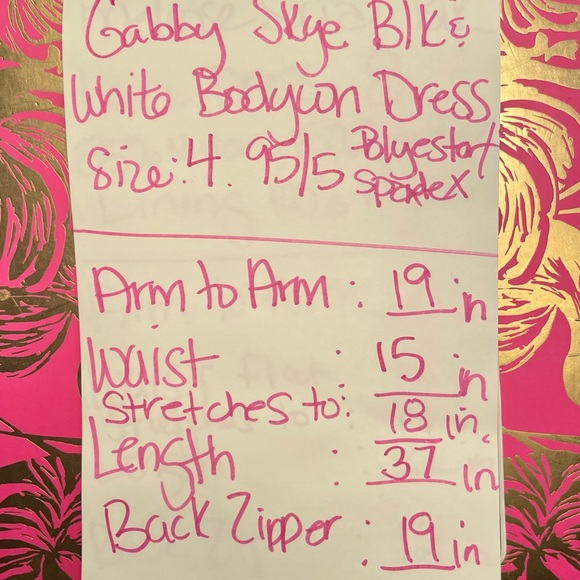 Gabby Skye Blk &
White Bodycon Dress
Size: 4. 95/5 Polyester/
Spandex
Arm to Arm : 19 in
Waist : 15 in
Stretches to: 18 in.
Length : 37 in
Back Zipper : 19 in